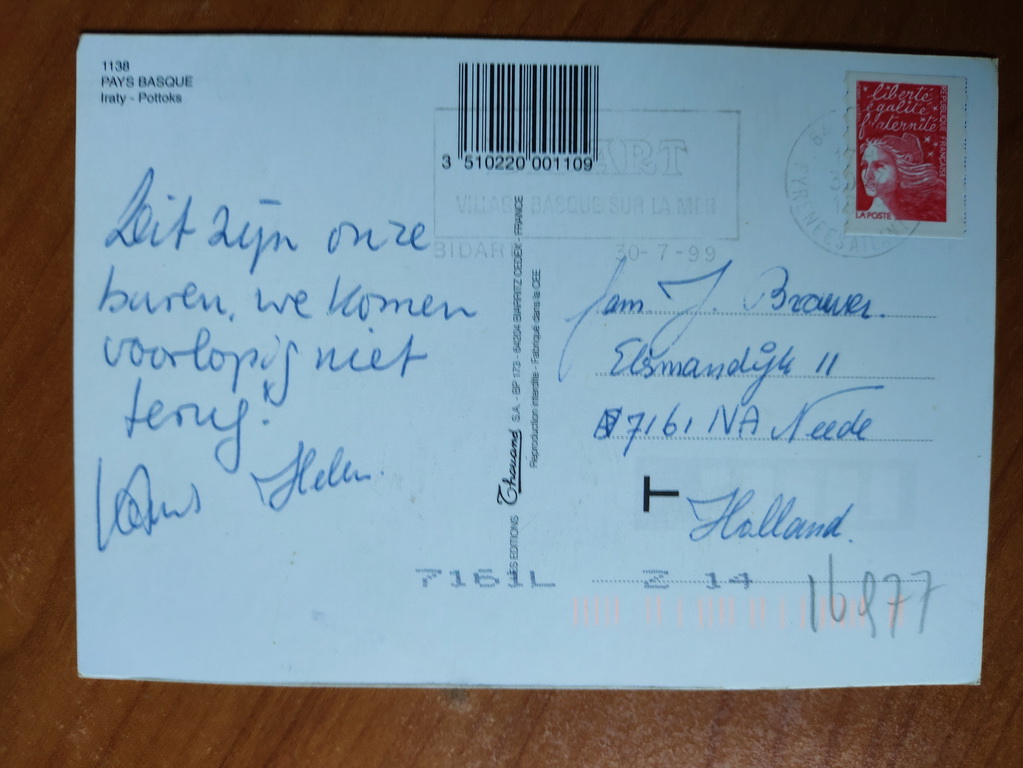 1138
PAYS BASQUE
Iraty - Pottoks
3 510220 001109
ART
VILLAGE BASQUE SUR LA MER
BIDART 30-7-99
PYRENEES ATLANT
liberté
égalité
fraternité
REPUBLIQUE FRANÇAISE
LA POSTE
Dit zijn onze
buren, we komen
voorlopig niet
terug!
Helen.
LES EDITIONS Thouand S.A. - BP 173 - 64204 BIARRITZ CEDEX - FRANCE
Reproduction interdite - Fabriqué dans la CEE
Fam. J. Brouwer.
Elsmandijk 11
7161 NA Neede
T
Holland.
7161L 2 14
16977